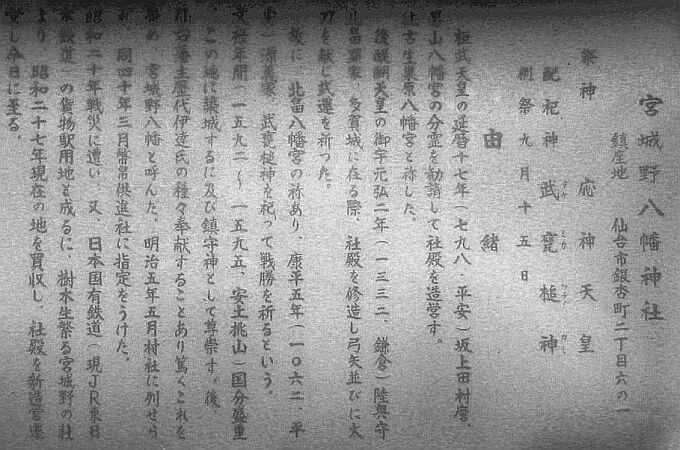 宮城野八幡神社
鎮座地 仙台市銀杏町二丁目六の一
祭神 応神天皇
配祀神 武甕槌神
タケ ミカ ツチノ カミ
例祭 九月十五日
由緒
桓武天皇の延暦十七年(七九八、平安)坂上田村麿、
男山八幡宮の分霊を勧請して社殿を造営す。
往古生巣原八幡宮と称した。
後醍醐天皇の御宇元弘二年(一三三二、鎌倉)陸奥守
北畠顕家、多賀城に在る際、社殿を修造し弓矢並びに太
刀を献じ武運を祈った。
後に、北畠八幡宮の称あり、康平五年(一〇六二、平
安)源義家、武甕槌神を祀って戦勝を祈るという。
文禄年間(一五九二〜一五九五、安土桃山)国分盛重
この地に築城するに及び鎮守神として尊崇す。後、
仙台藩主歴代伊達氏の種々奉献することあり篤くこれを
崇め、宮城野八幡と呼んだ。明治五年五月村社に列せら
れ、同四十年三月幣帛供進社に指定をうけた。
昭和二十年戦災に遭い、又、日本国有鉄道(現JR東日
本鉄道)の貨物駅用地と成るに、樹木生繁る宮城野の杜
より、昭和二十七年現在の地を買収し、社殿を新造営遷
し今日に至る。